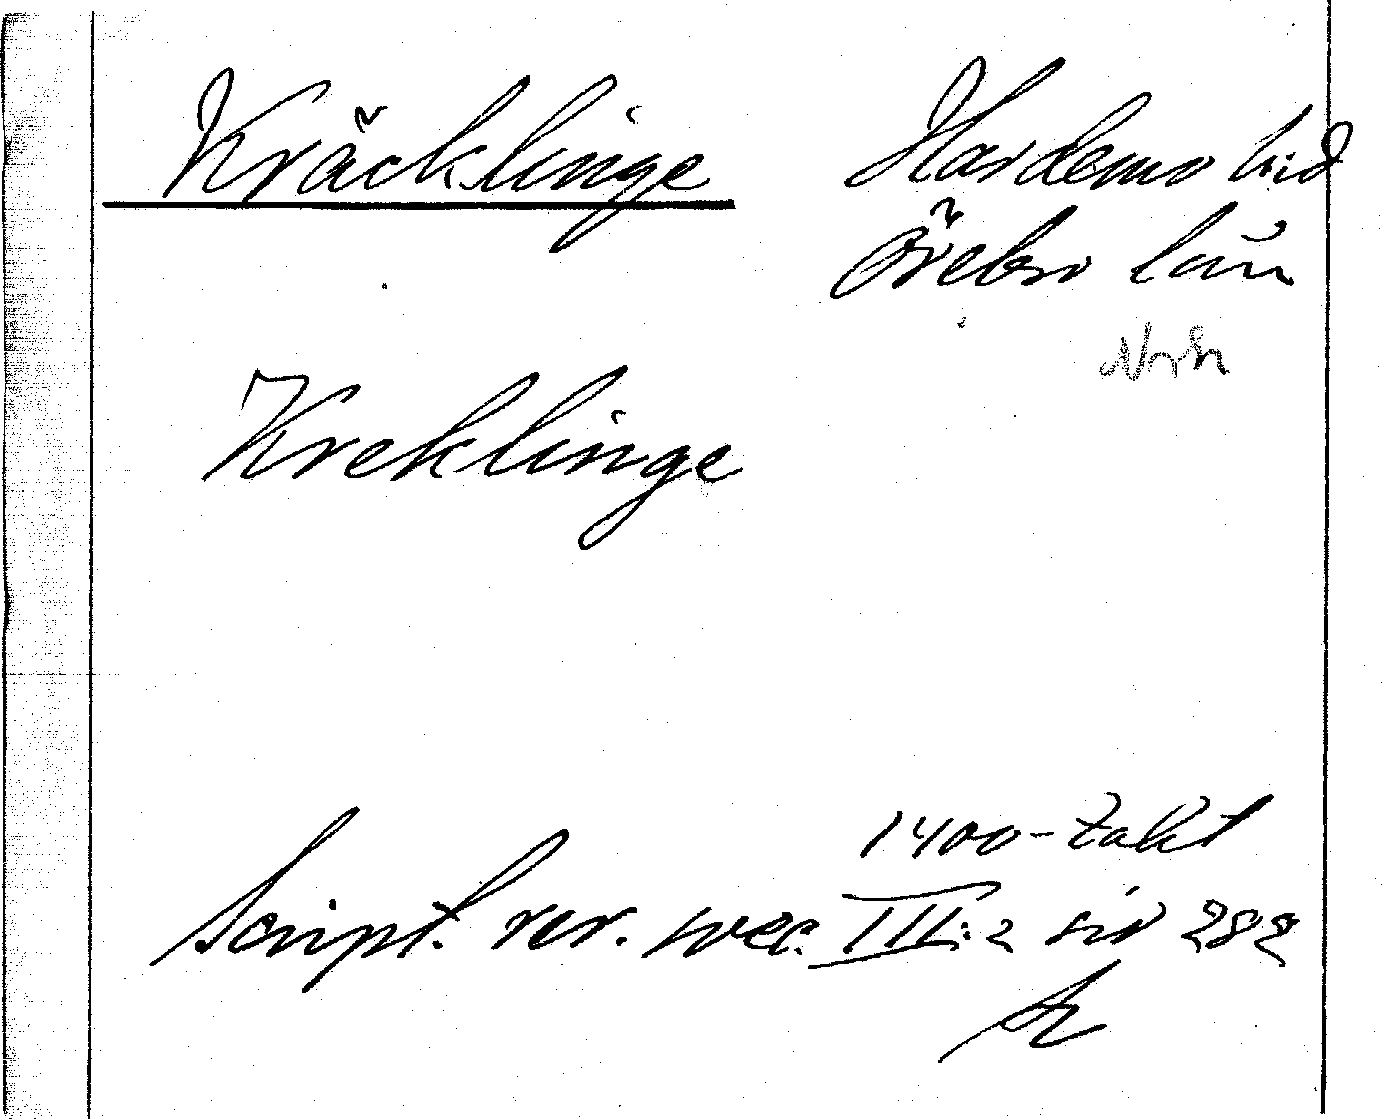 Kräcklinge
Hardemo hd
Örebro län
Kreklinge
1400-talet
Script. rer. svec. III:2 sid 282